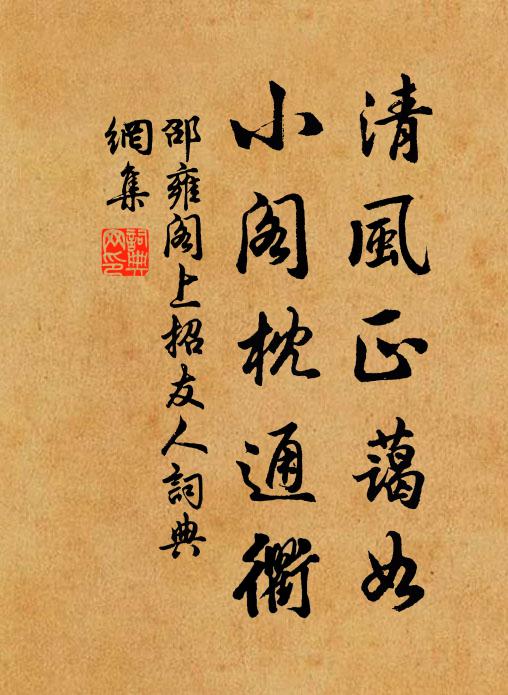 清風正藹如
小閣枕通衢
邵雍閣上招友人詞典
網集
詞典
網印